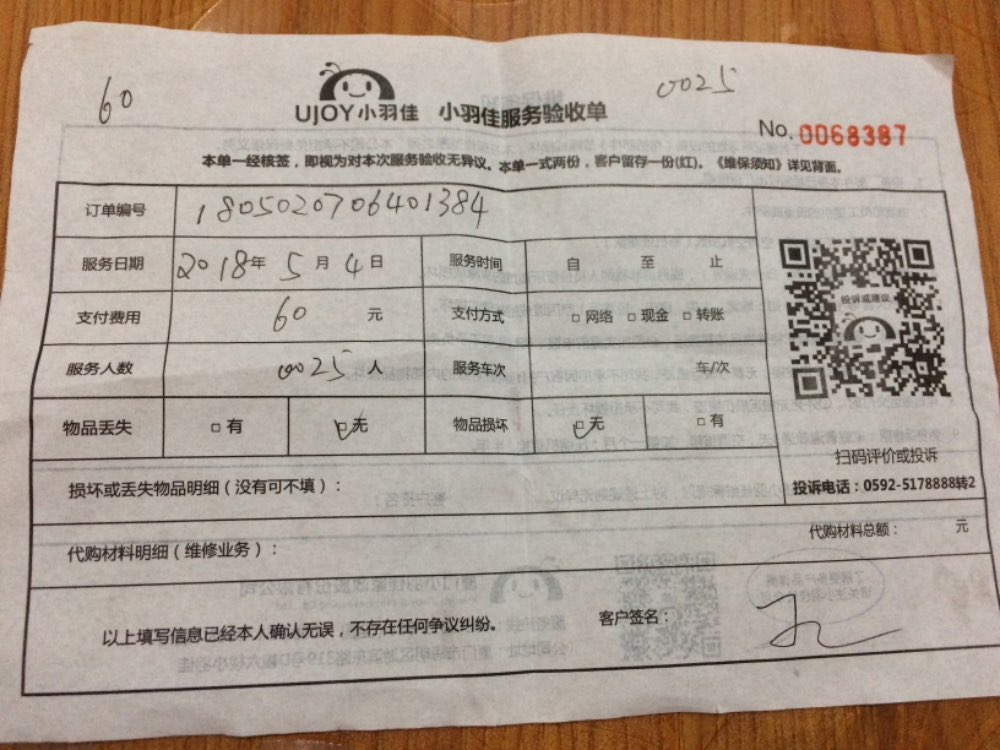 60
0025
UJOY小羽佳 小羽佳服务验收单
No. 0068387
本单一经核签，即视为对本次服务验收无异议。本单一式两份，客户留存一份(红)。《维保须知》详见背面。
订单编号 1805020706401384
服务日期 2018年 5 月 4 日 服务时间 自 至 止
投诉或建议
支付费用 60 元 支付方式 □ 网络 □ 现金 □ 转账
服务人数 0025 人 服务车次 车/次
物品丢失 □ 有 □ 无 物品损坏 □ 无 □ 有
扫码评价或投诉
投诉电话：0592-5178888转2
损坏或丢失物品明细（没有可不填）：
代购材料总额： 元
代购材料明细（维修业务）：
以上填写信息已经本人确认无误，不存在任何争议纠纷。
客户签名：